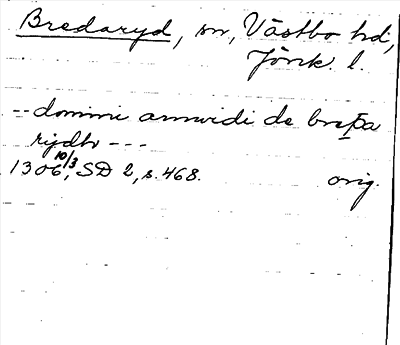 Bredaryd, sn, Västbo hd,
Jönk. l.
-- domini amuidi de braþa
rydh ---
1306 10/3, SD 2, s. 468. orig.